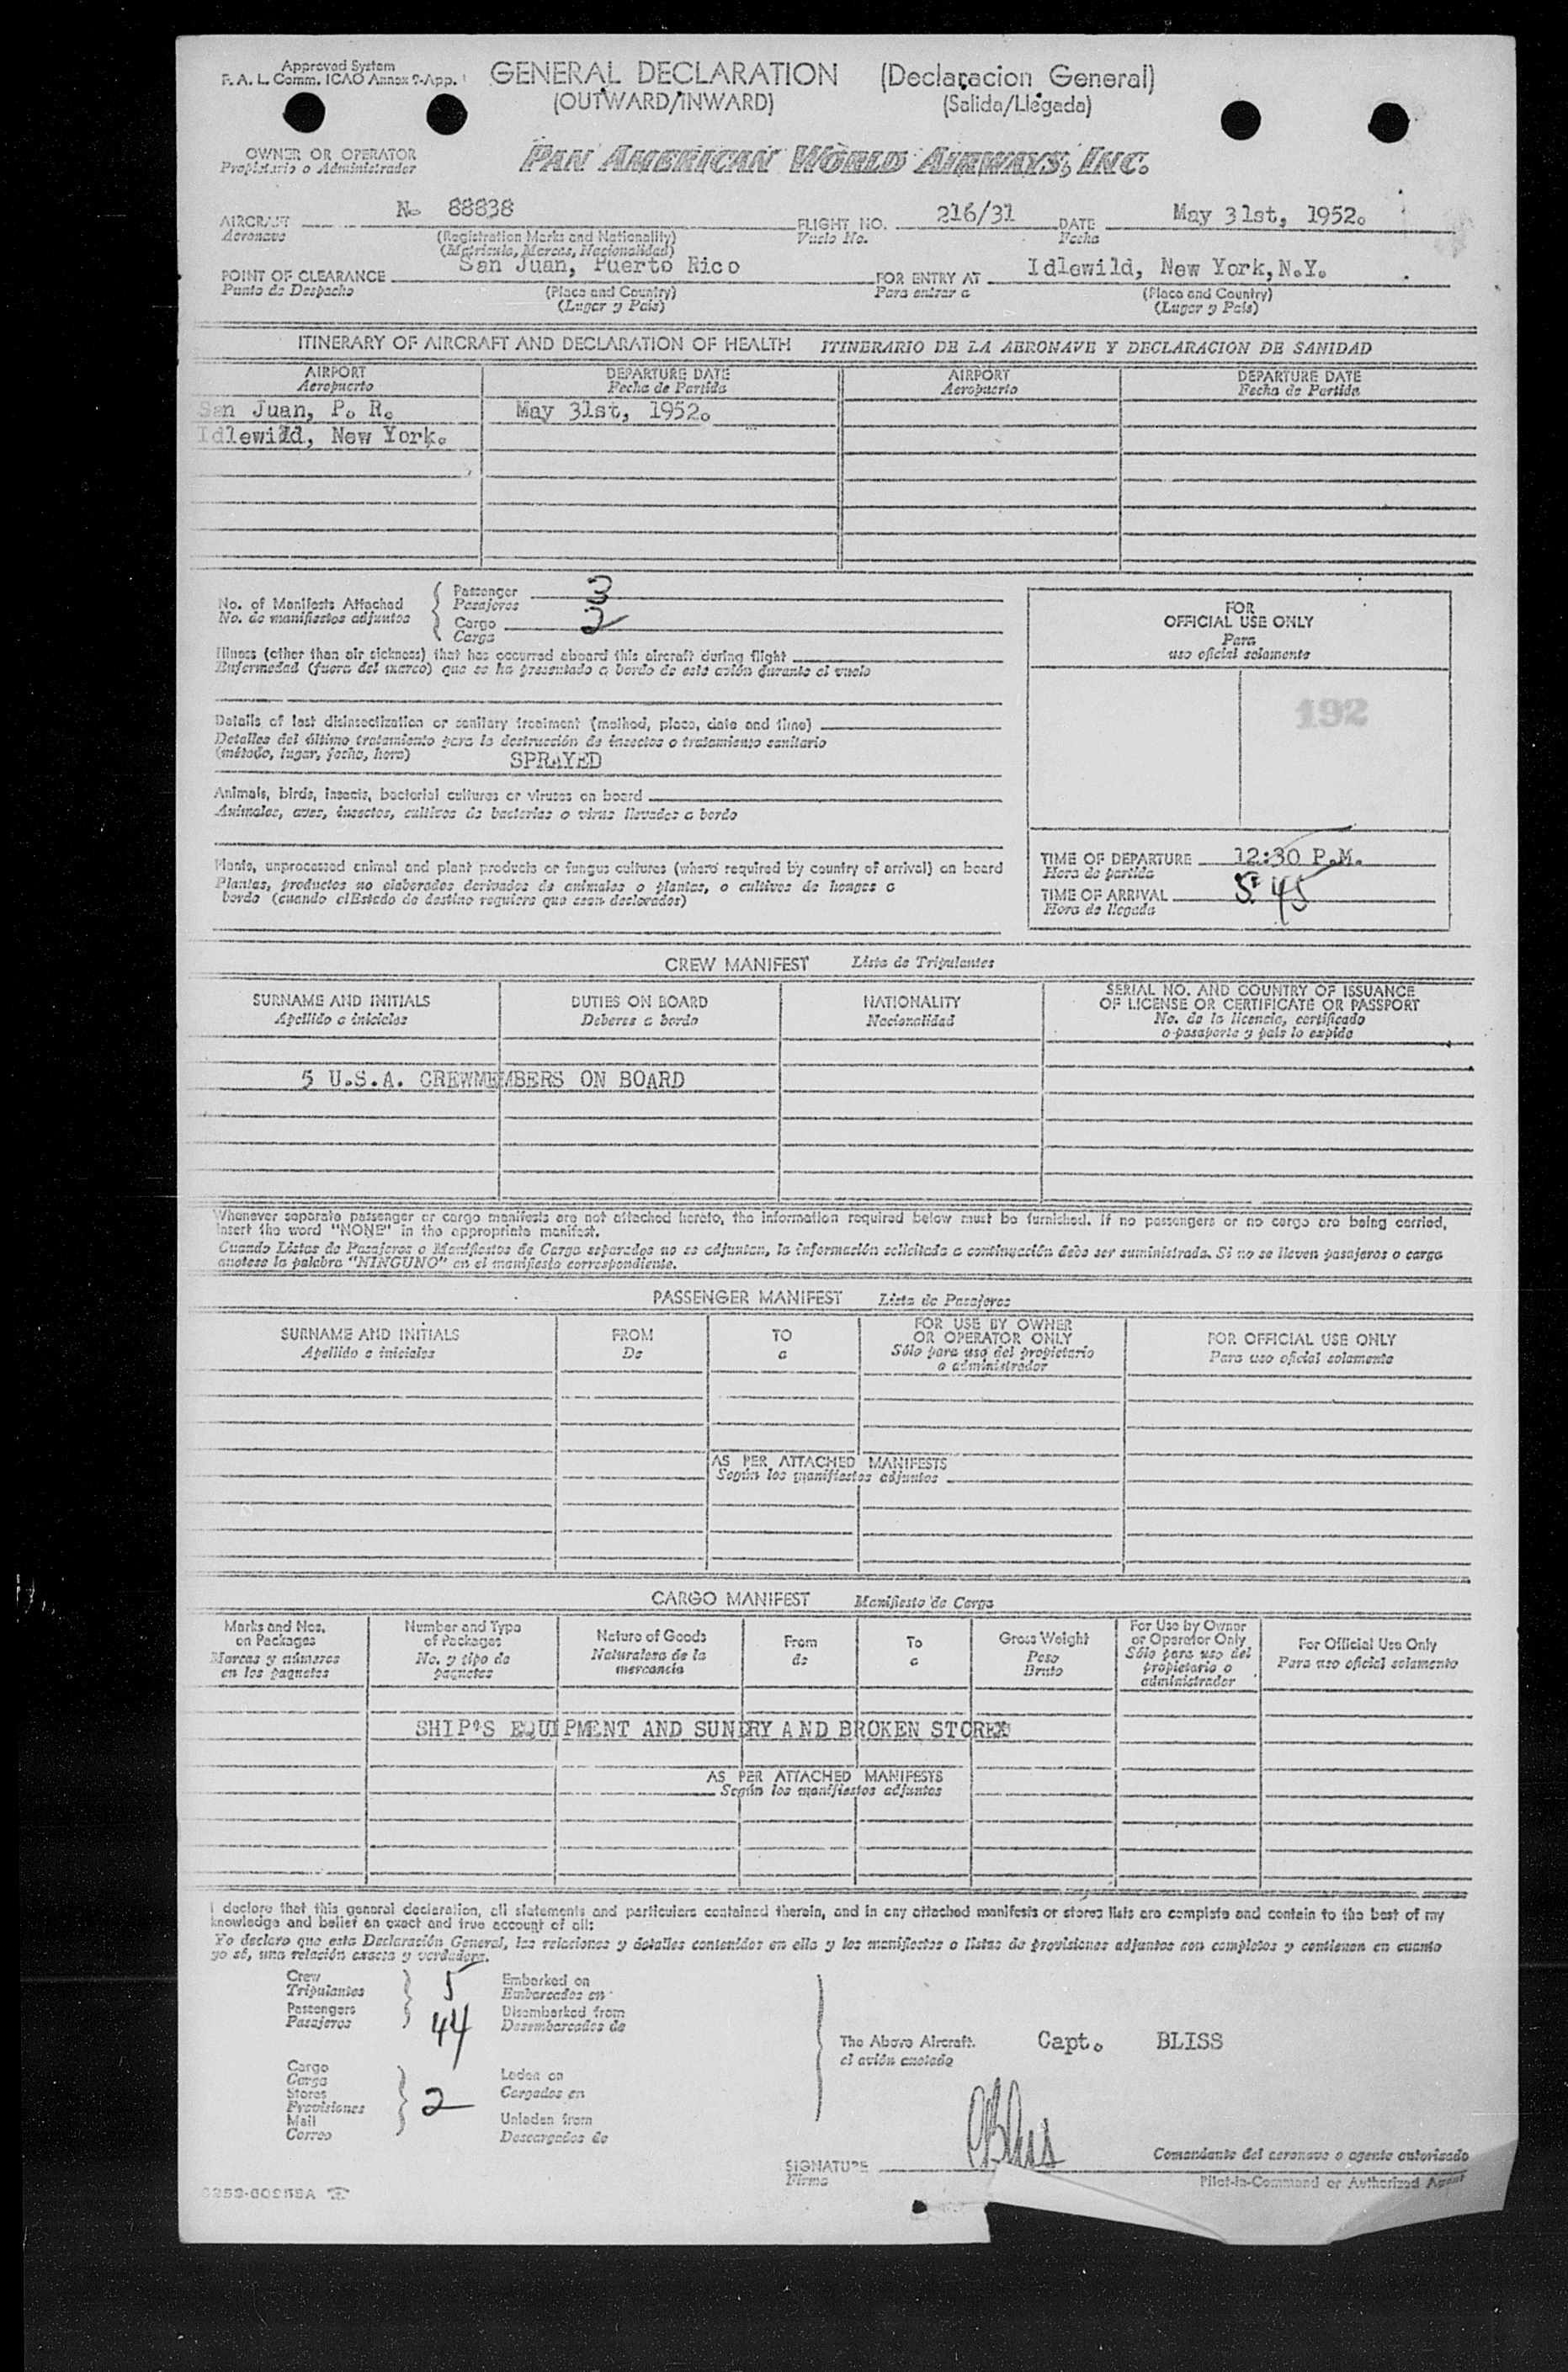 Approved System
F. A. L. Comm. ICAO Annex 9-App. 1
GENERAL DECLARATION (Declaracion General)
(OUTWARD/INWARD) (Salida/Llegada)
OWNER OR OPERATOR
Propietario o Administrador
PAN AMERICAN WORLD AIRWAYS, INC.
AIRCRAFT No 88838 FLIGHT NO. 216/31 DATE May 31st, 1952.
Aeronave (Registration Marks and Nationality) Vuelo No. Fecha
(Matricula, Marcas, Nacionalidad)
POINT OF CLEARANCE San Juan, Puerto Rico FOR ENTRY AT Idlewild, New York, N.Y.
Punto de Despacho (Place and Country) Para entrar a (Place and Country)
(Lugar y País) (Lugar y País)
ITINERARY OF AIRCRAFT AND DECLARATION OF HEALTH ITINERARIO DE LA AERONAVE Y DECLARACION DE SANIDAD
AIRPORT DEPARTURE DATE AIRPORT DEPARTURE DATE
Aeropuerto Fecha de Partida Aeropuerto Fecha de Partida
San Juan, P. R. May 31st, 1952.
Idlewild, New York.
No. of Manifests Attached
No. de manifiestos adjuntos
Passenger 3
Pasajeros
Cargo 2
Carga
Illness (other than air sickness) that has occurred aboard this aircraft during flight
Enfermedad (fuera del mareo) que se ha presentado a bordo de este avión durante el vuelo
Details of last disinsectization or sanitary treatment (method, place, date and time)
Detalles del último tratamiento para la destrucción de insectos o tratamiento sanitario
(método, lugar, fecha, hora) SPRAYED
Animals, birds, insects, bacterial cultures or viruses on board
Animales, aves, insectos, cultivos de bacterias o virus llevados a bordo
Plants, unprocessed animal and plant products or fungus cultures (where required by country of arrival) on board
Plantas, productos no elaborados derivados de animales o plantas, o cultivos de hongos a
bordo (cuando el Estado de destino requiera que sean declarados)
FOR
OFFICIAL USE ONLY
Para
uso oficial solamente
192
TIME OF DEPARTURE 12:30 P.M.
Hora de partida
TIME OF ARRIVAL 5:45
Hora de llegada
CREW MANIFEST Lista de Tripulantes
SURNAME AND INITIALS DUTIES ON BOARD NATIONALITY SERIAL NO. AND COUNTRY OF ISSUANCE
OF LICENSE OR CERTIFICATE OR PASSPORT
Apellido e iniciales Deberes a bordo Nacionalidad No. de la licencia, certificado
o pasaporte y país lo expide
5 U.S.A. CREWMEMBERS ON BOARD
Whenever separate passenger or cargo manifests are not attached hereto, the information required below must be furnished. If no passengers or no cargo are being carried,
insert the word "NONE" in the appropriate manifest.
Cuando Listas de Pasajeros o Manifiestos de Carga separados no se adjuntan, la información solicitada a continuación debe ser suministrada. Si no se lleven pasajeros o carga
anotese la palabra "NINGUNO" en el manifiesto correspondiente.
PASSENGER MANIFEST Lista de Pasajeros
SURNAME AND INITIALS FROM TO FOR USE BY OWNER
OR OPERATOR ONLY FOR OFFICIAL USE ONLY
Apellido e iniciales De a Sólo para uso del propietario
o administrador Para uso oficial solamente
AS PER ATTACHED MANIFESTS
Según los manifiestos adjuntos
CARGO MANIFEST Manifiesto de Carga
Marks and Nos.
on Packages
Marcas y números
en los paquetes
Number and Type
of Packages
No. y tipo de
paquetes
Nature of Goods
Naturaleza de la
mercancía
From
de
To
a
Gross Weight
Peso
Bruto
For Use by Owner
or Operator Only
Sólo para uso del
propietario o
administrador
For Official Use Only
Para uso oficial solamente
SHIP'S EQUIPMENT AND SUNDRY AND BROKEN STORES
AS PER ATTACHED MANIFESTS
Según los manifiestos adjuntos
I declare that this general declaration, all statements and particulars contained therein, and in any attached manifests or stores lists are complete and contain to the best of my
knowledge and belief an exact and true account of all:
Yo declaro que esta Declaración General, las relaciones y detalles contenidos en ella y los manifiestos o listas de provisiones adjuntos son completos y contienen en cuanto
yo sé, una relación exacta y verdadera.
Crew 5 Embarked on
Tripulantes Embarcados en
Passengers 44 Disembarked from
Pasajeros Desembarcados de
Cargo
Carga
Stores
Provisiones
Mail
Correo
2
Laden on
Cargados en
Unladen from
Descargados de
The Above Aircraft.
el avión anotado
Capt. BLISS
SIGNATURE
Firma
Comandante del aeronave o agente autorizado
Pilot-in-Command or Authorized Agent